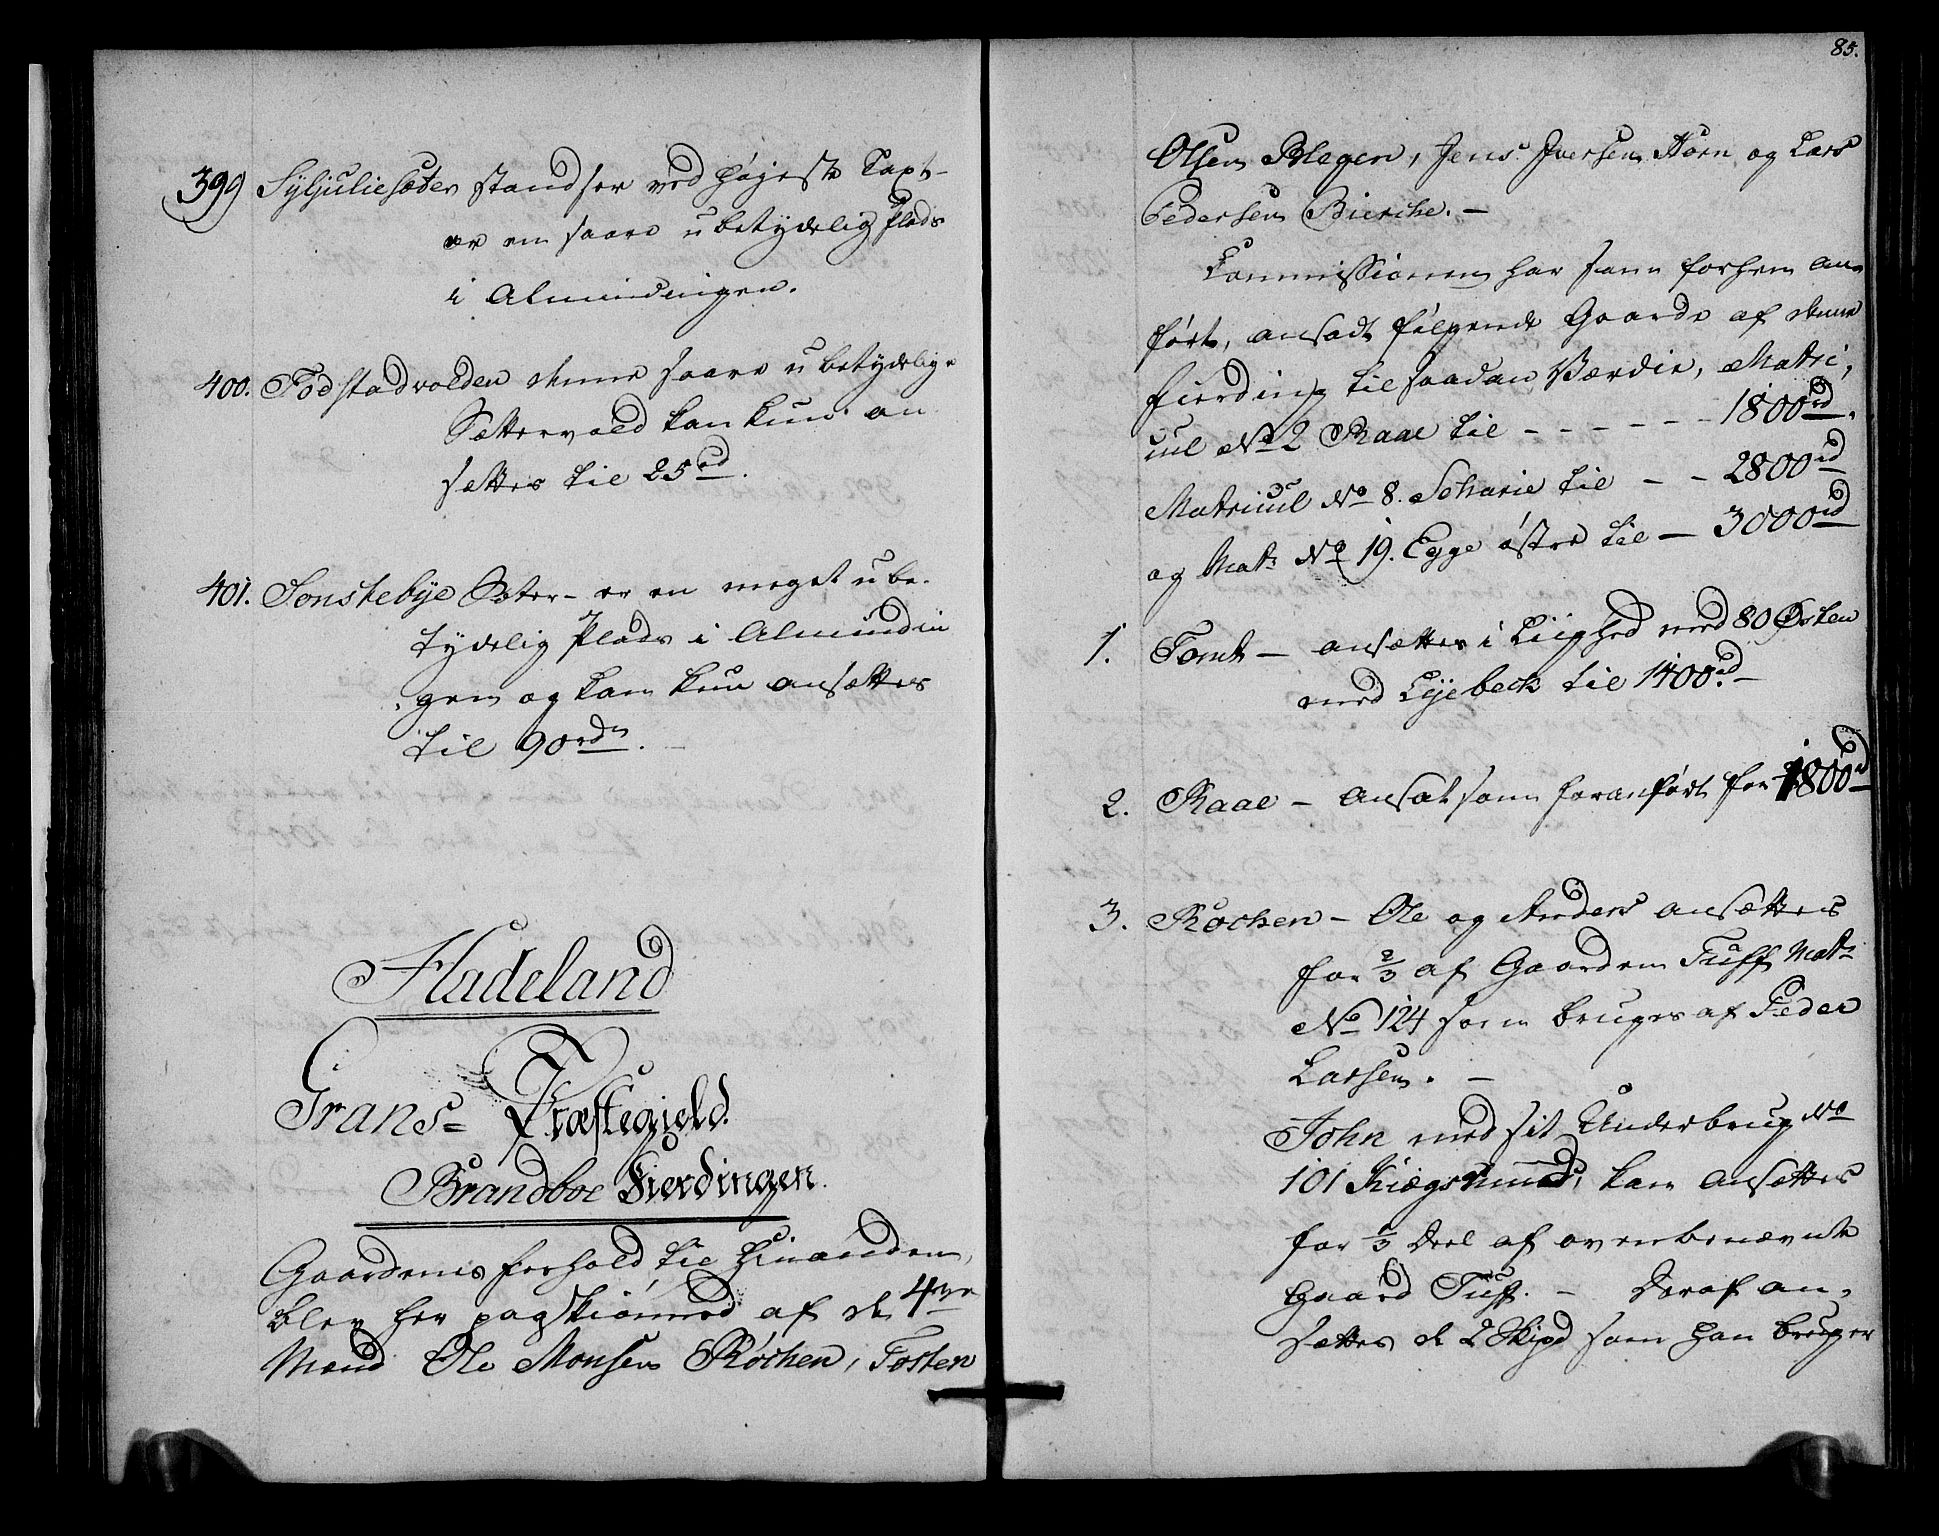 399 Syljuliesæter standser ved højeste Taxt-
er en saare ubetydelig Plads
i Almindingen.
400. Fødstadvolden denne saare ubetydelige
Sættervold kan kun an
sættes til 25 rd.
401. Sonstebye Sæter - er en meget ube-
tydelig Plads i Almindin
gen og kan kun ansættes
til 90 rdr.
Hadeland
Grans- Præstegield.
Brandboe Fierdingen.
Gaardenes forhold til hinanden,
blev her paaskiønned af de 4re
Mænd Ole Monsen Røchen, Tosten
85.
Olsen Blegen, Jens Iversen Horn, og Lars
Pedersen Bierche. -
Commissionen har som forhen an-
ført, ansadt følgende Gaarde af denne
Fierding til saadan Værdie, Matri,
cul No 2 Raae til - - - - - - 1800 rd.
Matricul No 8. Scharie til - - 2800 rd
og Mat: No 19. Egge østre til - 3000 rd
1. Tomt - ansættes i Liighed med 80 Østen
med Lyebeck til 1400 rd. -
2. Raae - ansat som foranført for 1800 rd
3. Røchen - Ole og Anders ansættes
for 2/3 af Gaarden Tuff Mat:
No 124 som bruges af Peder
Larsen. -
John med sit Underbrug No
101 kan ansættes
for 2/3 Deel af ovenbenævnte
Gaard Tuf. - Deraf an-
sættes de 2 Skpd som han bruger